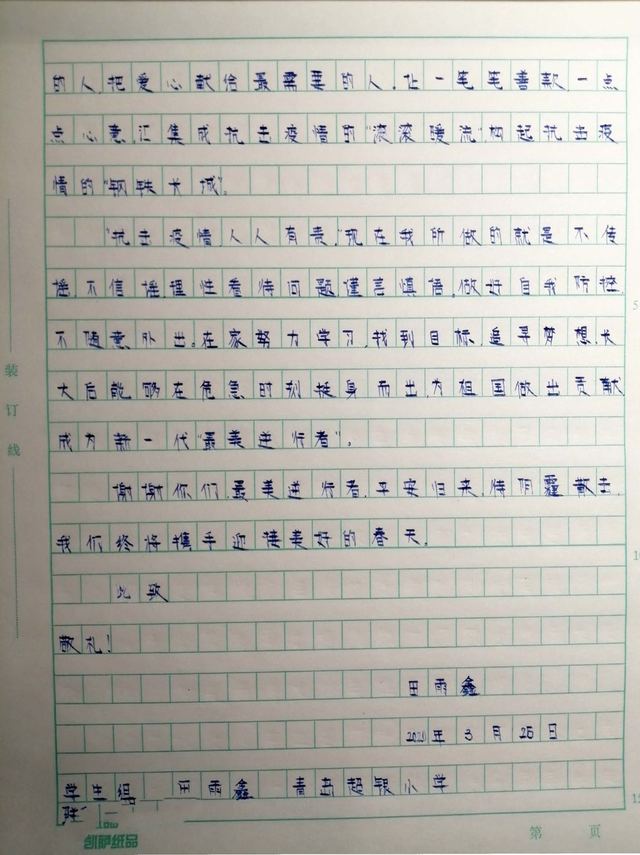 的人,把爱心献给最需要的人,让一笔笔善款一点
点心意,汇集成抗击疫情的"滚滚暖流",构起抗击疫
情的"钢铁长城"。
"抗击疫情,人人有责,"现在我所做的就是不传
摇,不信摇,理性看待问题,谨言慎悟,做好自我防控,
不随意外出。在家努力学习,找到目标,追寻梦想,长
大后能够在危急时刻挺身而出,为祖国做出贡献
成为新一代"最美逆行者"。
谢谢你们,最美逆行者,平安归来,待阴霾散去,
我们终将携手迎接美好的春天。
此致
敬礼!
田雨鑫
年3月26日
学生组 田雨鑫 青岛超银小学
凯萨纸品
第 页
装订线